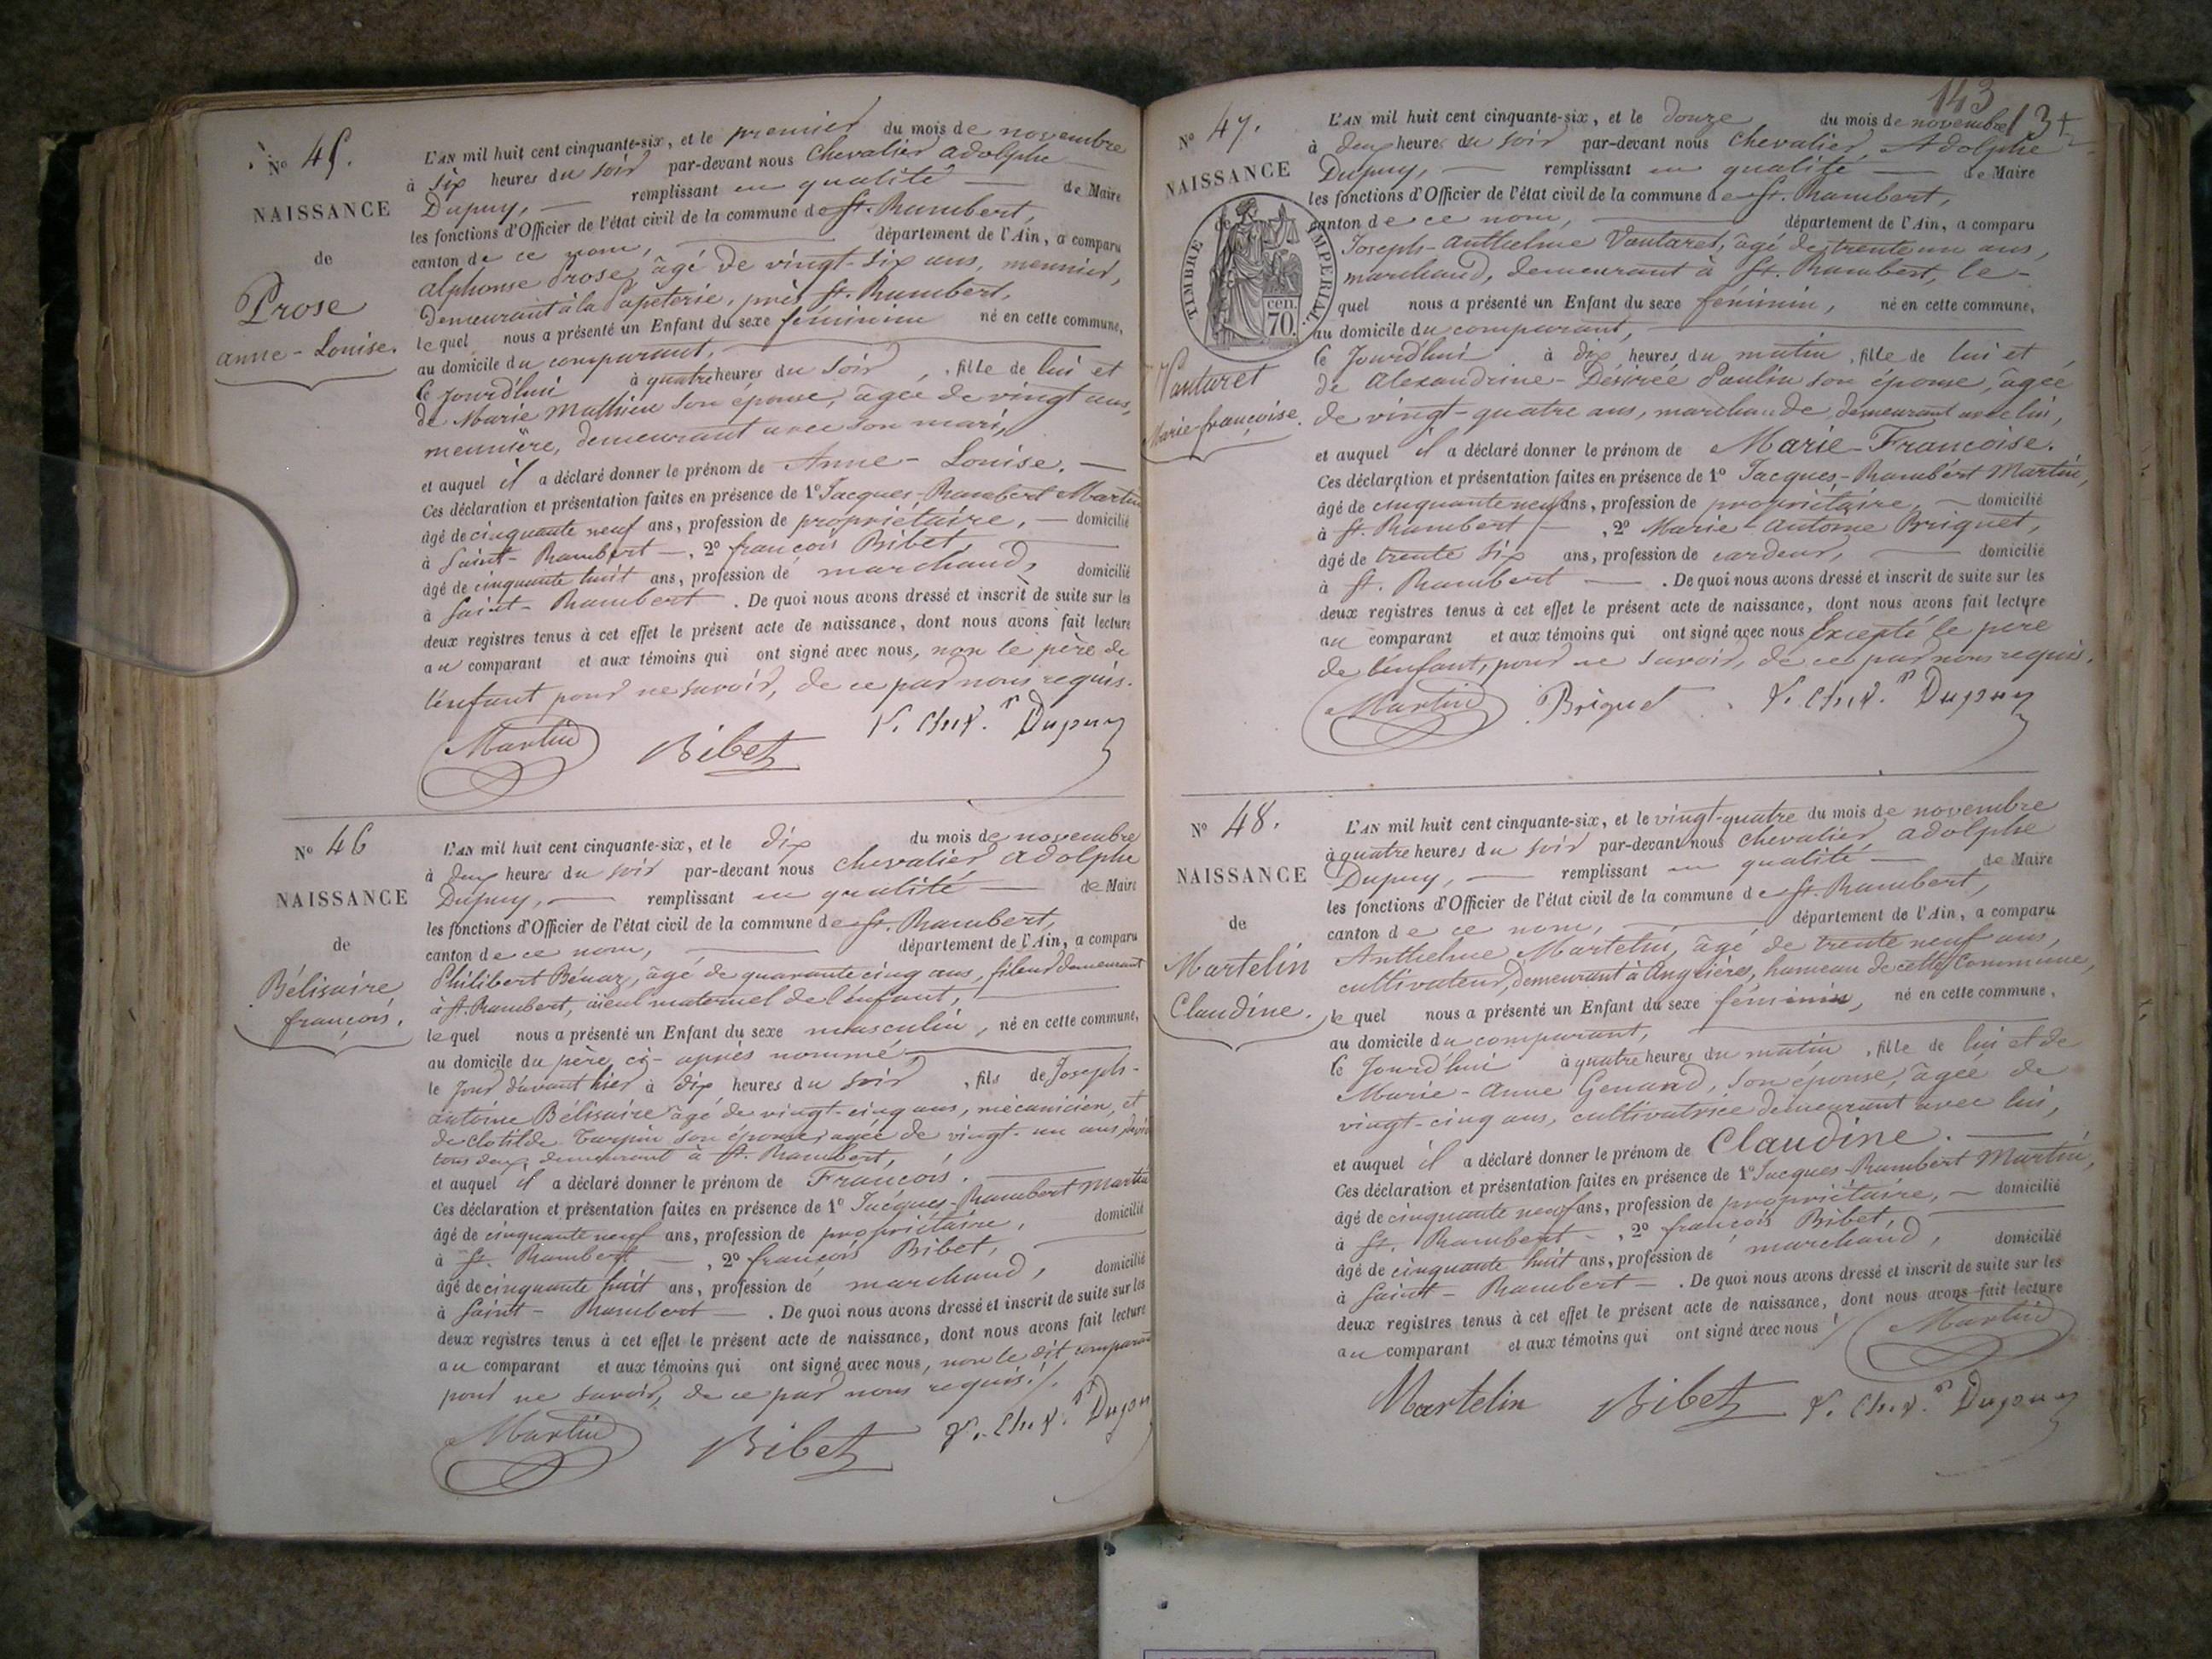 N° 45.
NAISSANCE
de
Prose
anne-Louise.
L'AN mil huit cent cinquante-six, et le premier du mois de novembre
à six heures du soir par-devant nous Chevalier Adolphe
Dupuy, — remplissant en qualité — de Maire
les fonctions d'Officier de l'état civil de la commune de St. Rambert,
canton de ce nom, — département de l'Ain, a comparu
alphonse Prose, âgé de vingt-six ans, meunier,
demeurant à la Papeterie, près St. Rambert,
lequel nous a présenté un Enfant du sexe féminin né en cette commune,
au domicile du comparant, —
ce Jourd'hui à quatre heures du soir, fille de lui et
de Marie Mathieu son épouse, âgée de vingt ans,
meunière, demeurant avec son mari,
et auquel il a déclaré donner le prénom de Anne-Louise. —
Ces déclaration et présentation faites en présence de 1° Jacques-Rambert Martin
âgé de cinquante neuf ans, profession de propriétaire, — domicilié
à Saint-Rambert —, 2° françois Bibet,
âgé de cinquante huit ans, profession de marchand, domicilié
à Saint-Rambert. De quoi nous avons dressé et inscrit de suite sur les
deux registres tenus à cet effet le présent acte de naissance, dont nous avons fait lecture
au comparant et aux témoins qui ont signé avec nous, non le père de
l'enfant pour ne savoir, de ce par nous requis.
Martin Bibet Dupuy
N° 46
NAISSANCE
de
Bélisaire
françois.
L'AN mil huit cent cinquante-six, et le dix du mois de novembre
à deux heures du soir par-devant nous Chevalier Adolphe
Dupuy, — remplissant en qualité — de Maire
les fonctions d'Officier de l'état civil de la commune de St. Rambert,
canton de ce nom, — département de l'Ain, a comparu
Philibert Bénaz, âgé de quarante cinq ans, fileur demeurant
à St. Rambert, aïeul maternel de l'enfant, —
lequel nous a présenté un Enfant du sexe masculin, né en cette commune,
au domicile du père ci-après nommé, —
le Jour d'avant hier à dix heures du soir, fils de Joseph-
antoine Bélisaire âgé de vingt-cinq ans, mécanicien, et
de Clotilde Turpin son épouse, agée de vingt-un ans,
tous deux demeurant à St. Rambert,
et auquel il a déclaré donner le prénom de François. —
Ces déclaration et présentation faites en présence de 1° Jacques-Rambert Martin
âgé de cinquante neuf ans, profession de propriétaire, domicilié
à St. Rambert —, 2° françois Bibet, —
âgé de cinquante huit ans, profession de marchand, domicilié
à Saint-Rambert —. De quoi nous avons dressé et inscrit de suite sur les
deux registres tenus à cet effet le présent acte de naissance, dont nous avons fait lecture
au comparant et aux témoins qui ont signé avec nous, non le dit comparant
pour ne savoir, de ce par nous requis./.
Martin Bibet Dupuy
143
N° 47.
NAISSANCE
de
TIMBRE IMPERIAL
70 cen.
Vantaret
Marie-françoise.
L'AN mil huit cent cinquante-six, et le douze du mois de novembre
à deux heures du soir par-devant nous Chevalier Adolphe
Dupuy, — remplissant en qualité — de Maire
les fonctions d'Officier de l'état civil de la commune de St. Rambert,
canton de ce nom, — département de l'Ain, a comparu
Joseph-Anthelme Vantaret, âgé de trente un ans,
marchand, demeurant à St. Rambert, le-
quel nous a présenté un Enfant du sexe féminin, né en cette commune,
au domicile du comparant, —
ce Jourd'hui à dix heures du matin, fille de lui et
de Alexandrine-Désirée Paulin son épouse, âgée
de vingt-quatre ans, marchande, demeurant avec lui,
et auquel il a déclaré donner le prénom de Marie-Françoise.
Ces déclaration et présentation faites en présence de 1° Jacques-Rambert Martin,
âgé de cinquante neuf ans, profession de propriétaire, — domicilié
à St. Rambert —, 2° Marie-Antoine Briguet,
âgé de trente six ans, profession de cardeur, — domicilié
à St. Rambert —. De quoi nous avons dressé et inscrit de suite sur les
deux registres tenus à cet effet le présent acte de naissance, dont nous avons fait lecture
au comparant et aux témoins qui ont signé avec nous Excepté le père
de l'enfant, pour ne savoir, de ce par nous requis.
Martin Briguet Dupuy
N° 48.
NAISSANCE
de
Martelin
Claudine.
L'AN mil huit cent cinquante-six, et le vingt-quatre du mois de novembre
à quatre heures du soir par-devant nous Chevalier Adolphe
Dupuy, — remplissant en qualité — de Maire
les fonctions d'Officier de l'état civil de la commune de St. Rambert,
canton de ce nom, — département de l'Ain, a comparu
Anthelme Martelin, âgé de trente neuf ans,
cultivateur, demeurant à Angrières, hameau de cette Commune,
lequel nous a présenté un Enfant du sexe féminin, né en cette commune,
au domicile du comparant, —
ce Jourd'hui à quatre heures du matin, fille de lui et de
Marie-Anne Genand, son épouse, âgée de
vingt-cinq ans, cultivatrice demeurant avec lui,
et auquel il a déclaré donner le prénom de Claudine. —
Ces déclaration et présentation faites en présence de 1° Jacques-Rambert Martin,
âgé de cinquante neuf ans, profession de propriétaire, — domicilié
à St. Rambert —, 2° françois Bibet, —
âgé de cinquante huit ans, profession de marchand, domicilié
à Saint-Rambert —. De quoi nous avons dressé et inscrit de suite sur les
deux registres tenus à cet effet le présent acte de naissance, dont nous avons fait lecture
au comparant et aux témoins qui ont signé avec nous /
Martin
Martelin Bibet Dupuy